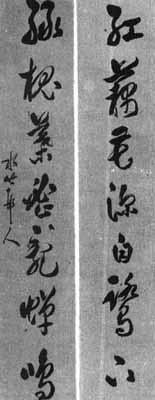 紅藕花深白鷺下
綠槐葉密亂蟬鳴
水竹邨人